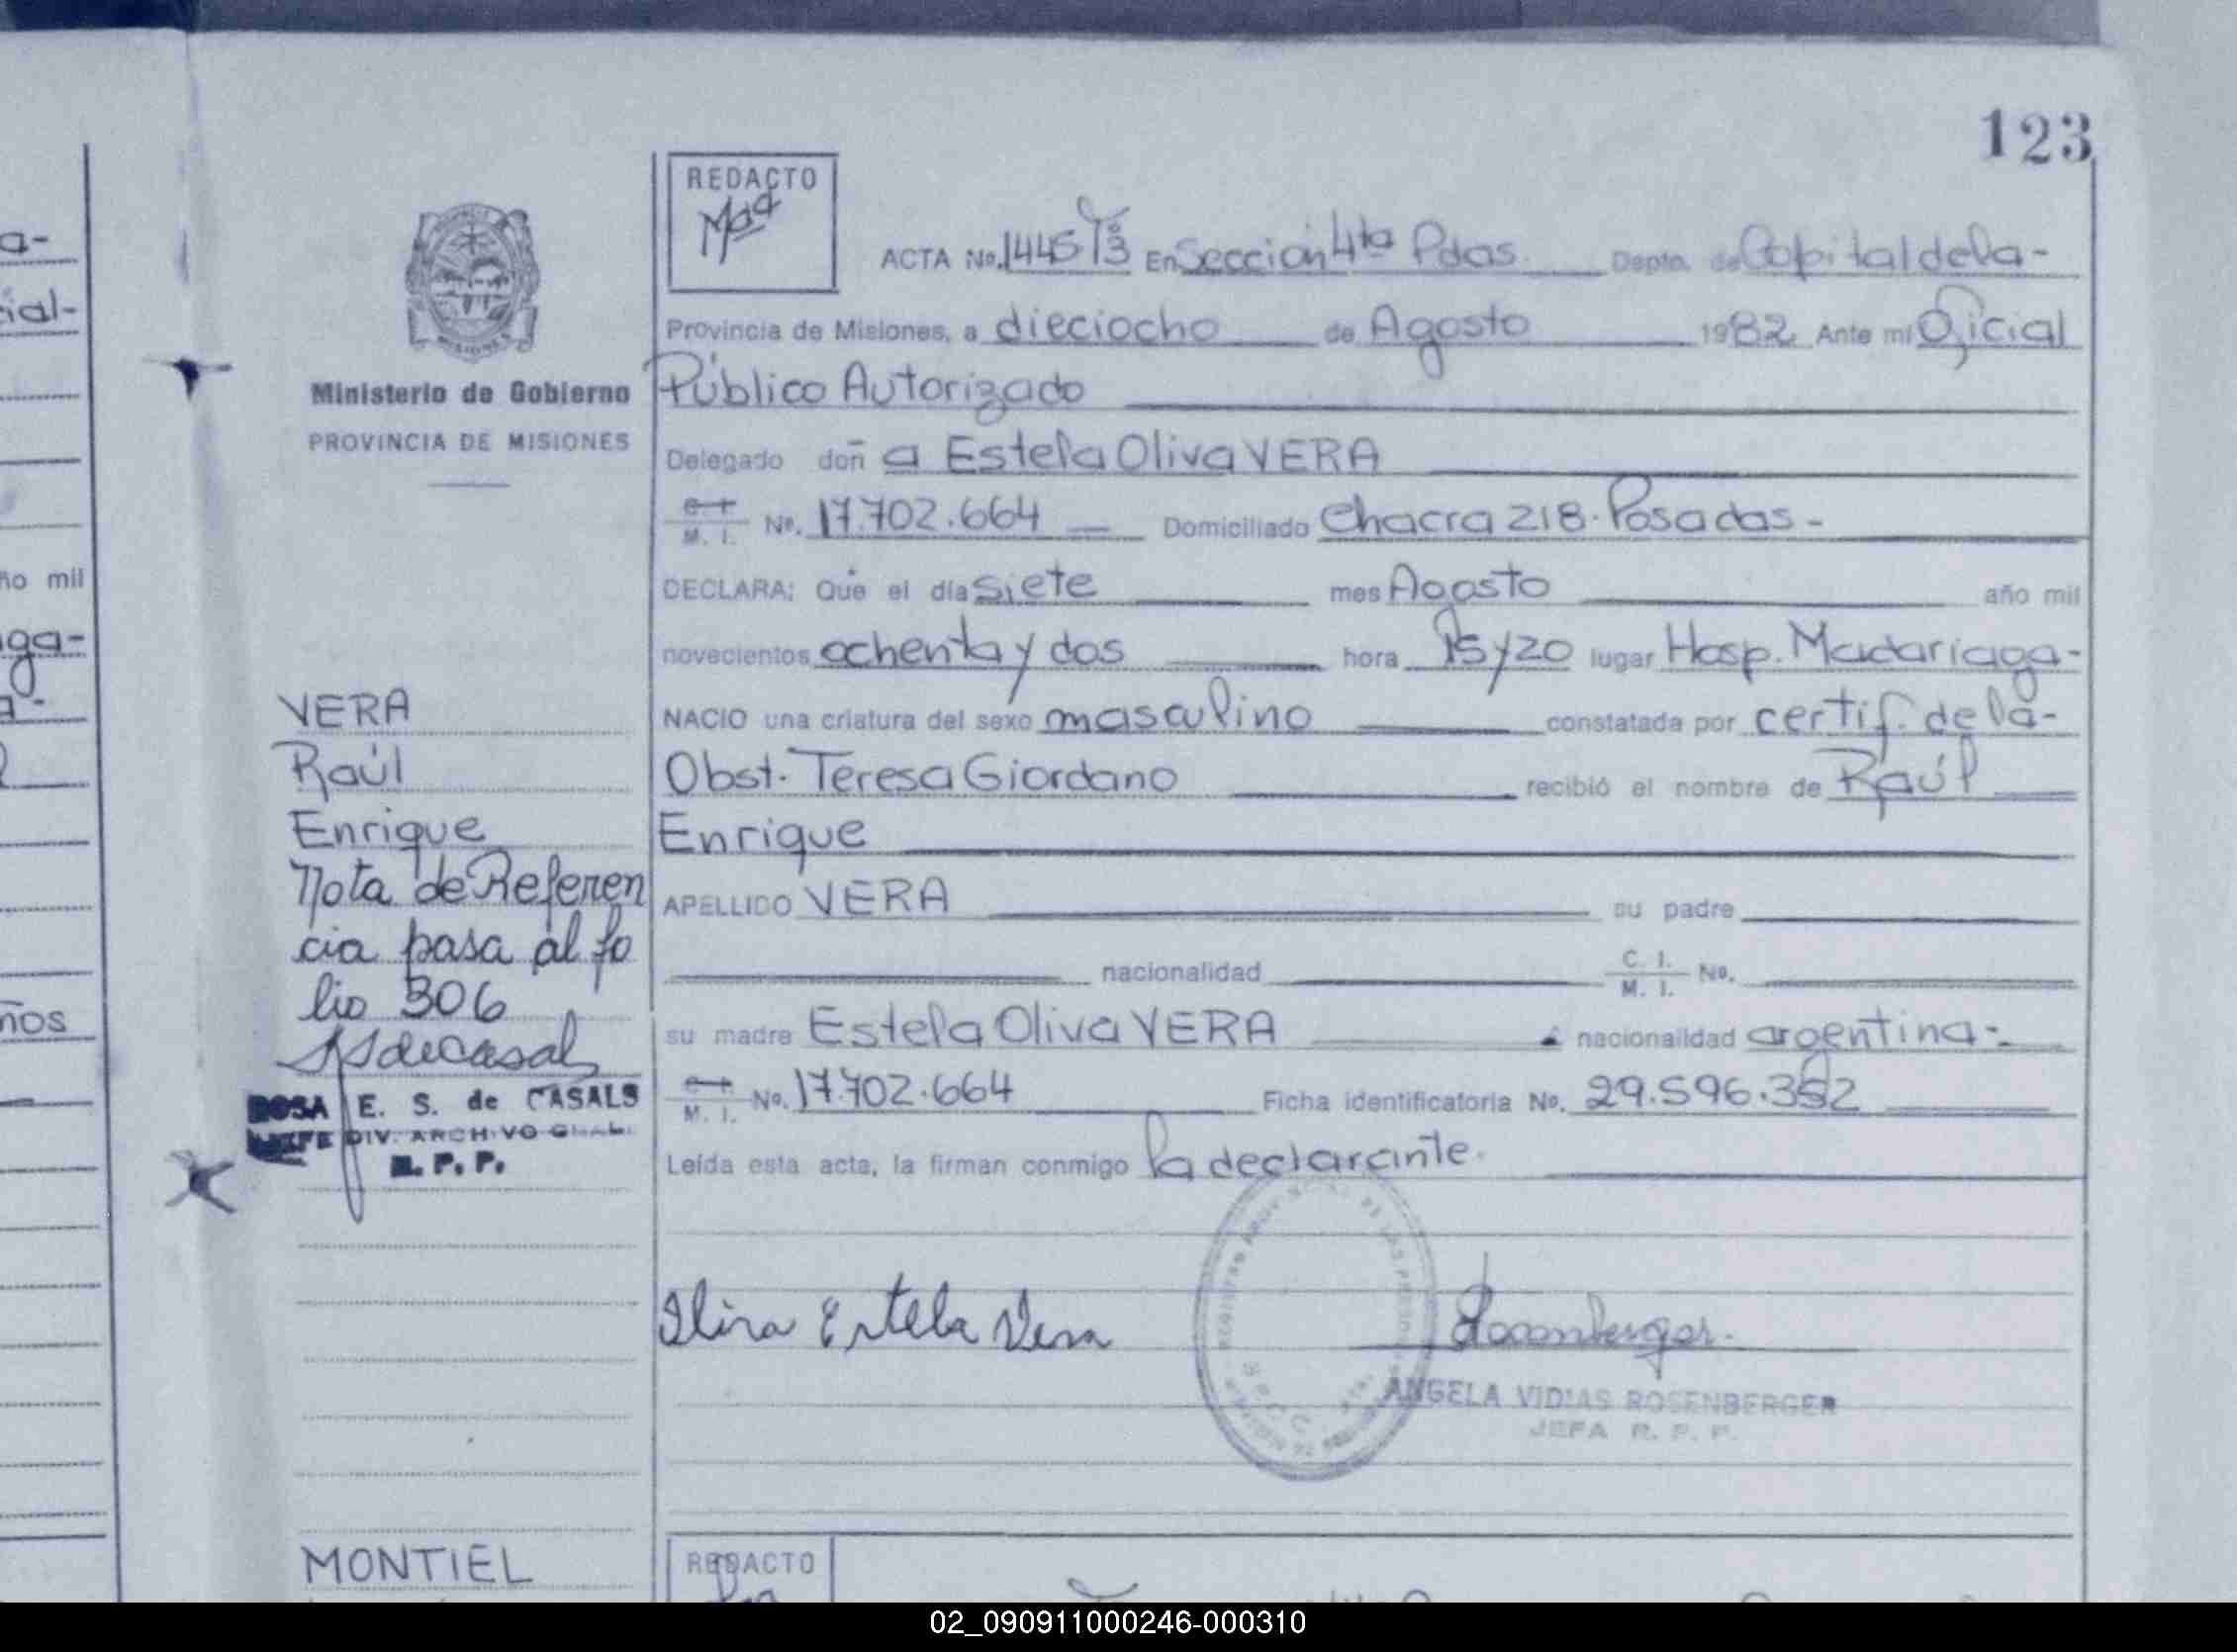 123
REDACTO
ACTA No. 1445 Tº3 En Sección 4ta Pdas. Depto. de Capital de la-
Provincia de Misiones, a dieciocho de Agosto 1982 Ante mí Oficial
Público Autorizado
Delegado doñ a Estela Oliva VERA
C. I. / M. I. No. 17.702.664 Domiciliado Chacra 218. Posadas-
DECLARA: Que el día siete mes Agosto año mil
novecientos ochenta y dos hora 15 y 20 lugar Hosp. Madariaga-
NACIO una criatura del sexo masculino constatada por certif. de la-
Obst. Teresa Giordano recibió el nombre de Raúl
Enrique
APELLIDO VERA su padre
nacionalidad C. I. / M. I. No.
su madre Estela Oliva VERA nacionalidad argentina-
C. I. / M. I. No. 17.702.664 Ficha identificatoria No. 29.596.352
Leída esta acta, la firman conmigo la declarante.
Estela Vera
Rosemberger.
ANGELA VIDIAS ROSENBERGER
JEFA R. P. P.
Ministerio de Gobierno
PROVINCIA DE MISIONES
VERA
Raúl
Enrique
Nota de Referen
cia pasa al fo
lio 306
ROSA E. S. de CASALS
JEFE DIV. ARCHIVO GRAL.
R. P. P.
MONTIEL
REDACTO
a-
cial-
ño mil
ga-
ños
02_090911000246-000310